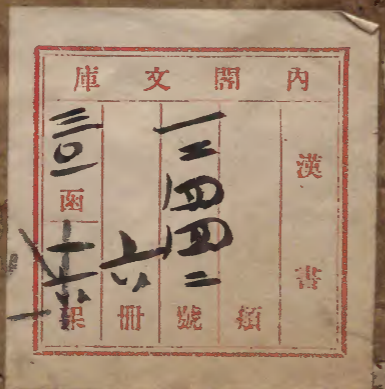 內閣文庫
漢書
類
一三四四二號
六冊
三〇一函
架